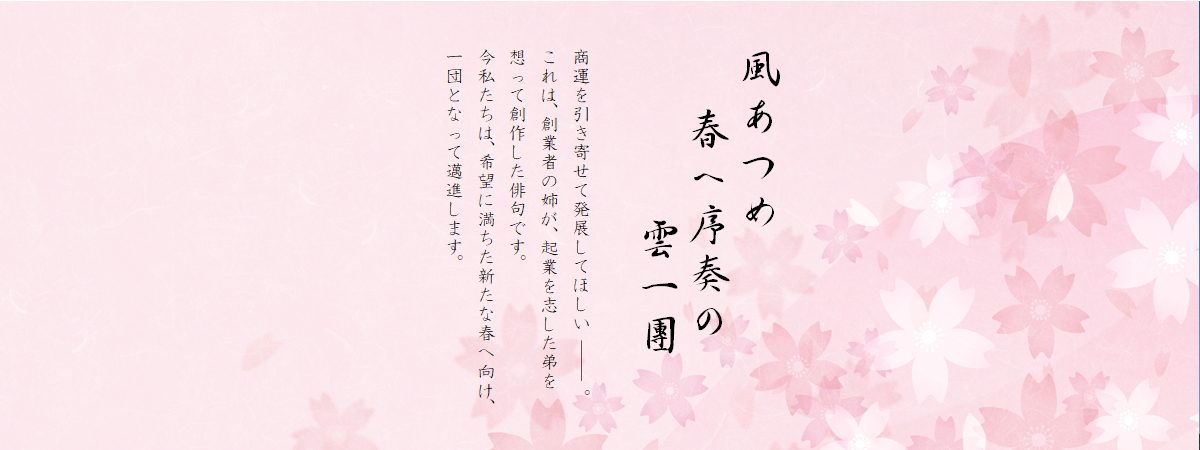 風あつめ
春へ序奏の
雲一團
商運を引き寄せて発展してほしい ――。
これは、創業者の姉が、起業を志した弟を
想って創作した俳句です。
今私たちは、希望に満ちた新たな春へ向け、
一団となって邁進します。